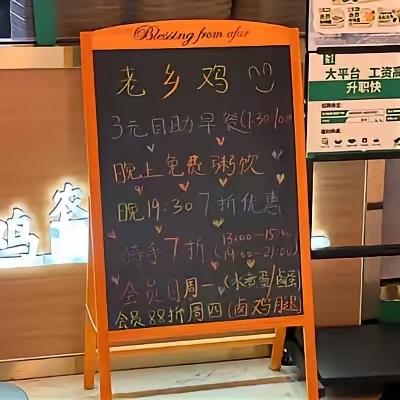 Blessing from afar
老乡鸡
3元自助早餐(7:30/10:00
晚上免费粥饮
晚19:30 7折优惠
骑手7折(13:00-15:00
19:00-21:00)
会员日周一(水煮蛋/卤蛋
会员88折周四(卤鸡腿
大平台 工资高
升职快
鸡